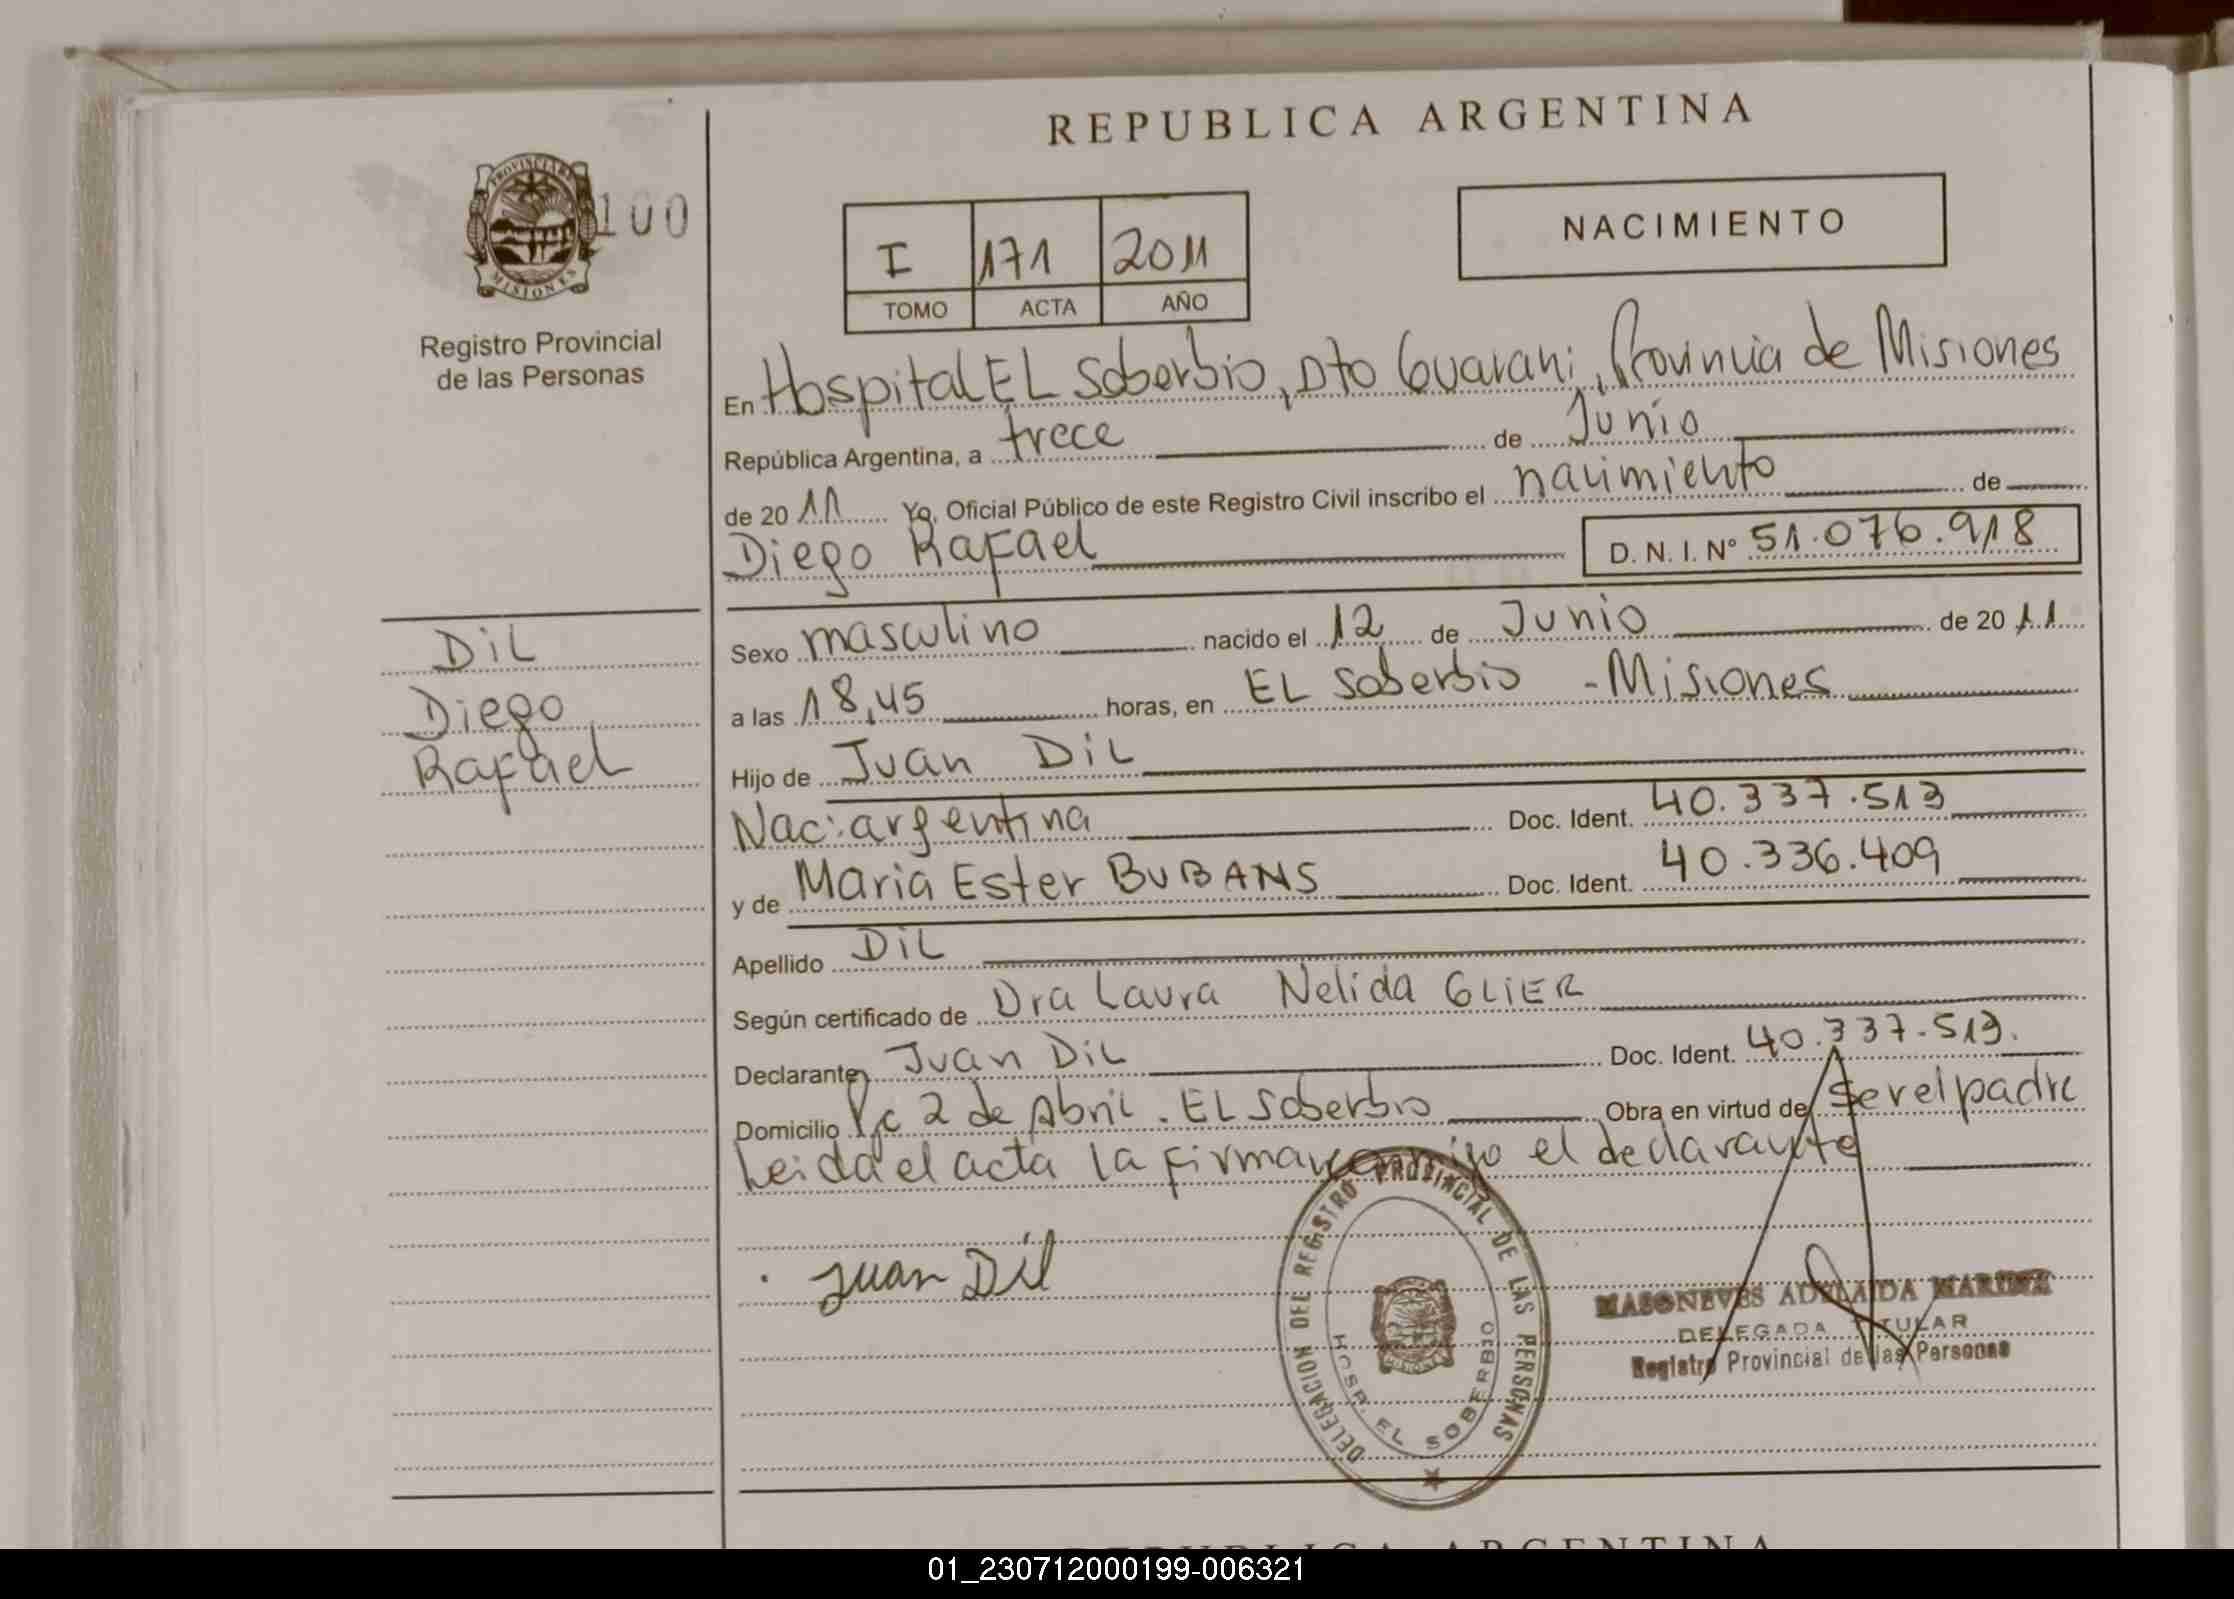 REPUBLICA ARGENTINA
PROVINCIA DE
MISIONES
100
Registro Provincial
de las Personas
I 171 2011
TOMO ACTA AÑO
NACIMIENTO
En Hospital EL Soberbio, Dto Guarani, Provincia de Misiones
República Argentina, a trece de Junio
de 2011 Yo, Oficial Público de este Registro Civil inscribo el nacimiento de
Diego Rafael D. N. I. Nº 51.076.918
DiL
Diego
Rafael
Sexo masculino nacido el 12 de Junio de 2011
a las 18,45 horas, en EL Soberbio - Misiones
Hijo de Juan DiL
Nac: argentina Doc. Ident. 40.337.513
y de Maria Ester BUBANS Doc. Ident. 40.336.409
Apellido DiL
Según certificado de Dra Laura Nelida GLiER
Declarante Juan DiL Doc. Ident. 40.337.513.
Domicilio 2 de Abril. EL Soberbio Obra en virtud de ser el padre
Leida el acta la firma el declarante
Juan Dil
DELEGACION DEL REGISTRO PROVINCIAL DE LAS PERSONAS
HOSP. EL SOBERBIO
ADELAIDA
DELEGADA TITULAR
Registro Provincial de las Personas
REPUBLICA ARGENTINA
01_230712000199-006321